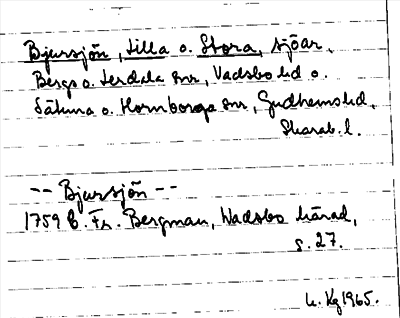 Bjursjön, Lilla o. Stora, sjöar,
Bergs o. Lerdala snr, Vadsbo hd o.
Sätuna o. Hornborga snr, Gudhems hd,
Skarab. l.
-- Bjursjön --
1759 B. Fr. Bergman, Wadsbo härad,
s. 27.
Kg 1965.